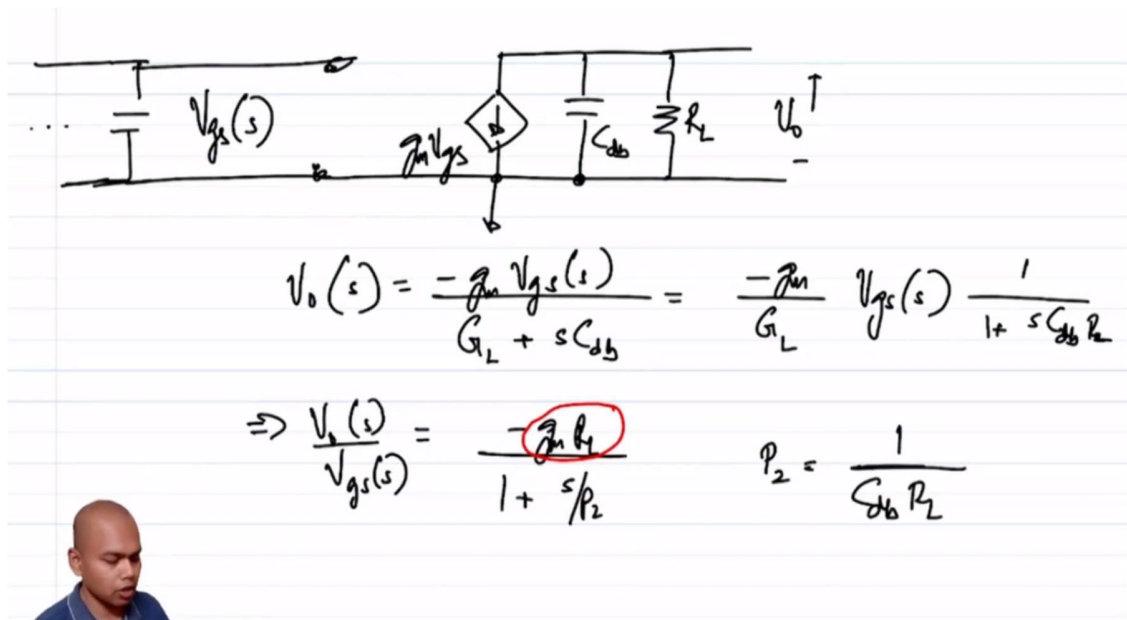 ... V_gs(s) g_m V_gs C_db R_L V_o ↑ -
V_o(s) = -g_m V_gs(s) / (G_L + sC_db) = -g_m / G_L V_gs(s) 1 / (1 + sC_db R_L)
⇒ V_o(s) / V_gs(s) = -g_m R_L / (1 + s/p_2) P_2 = 1 / (C_db R_L)